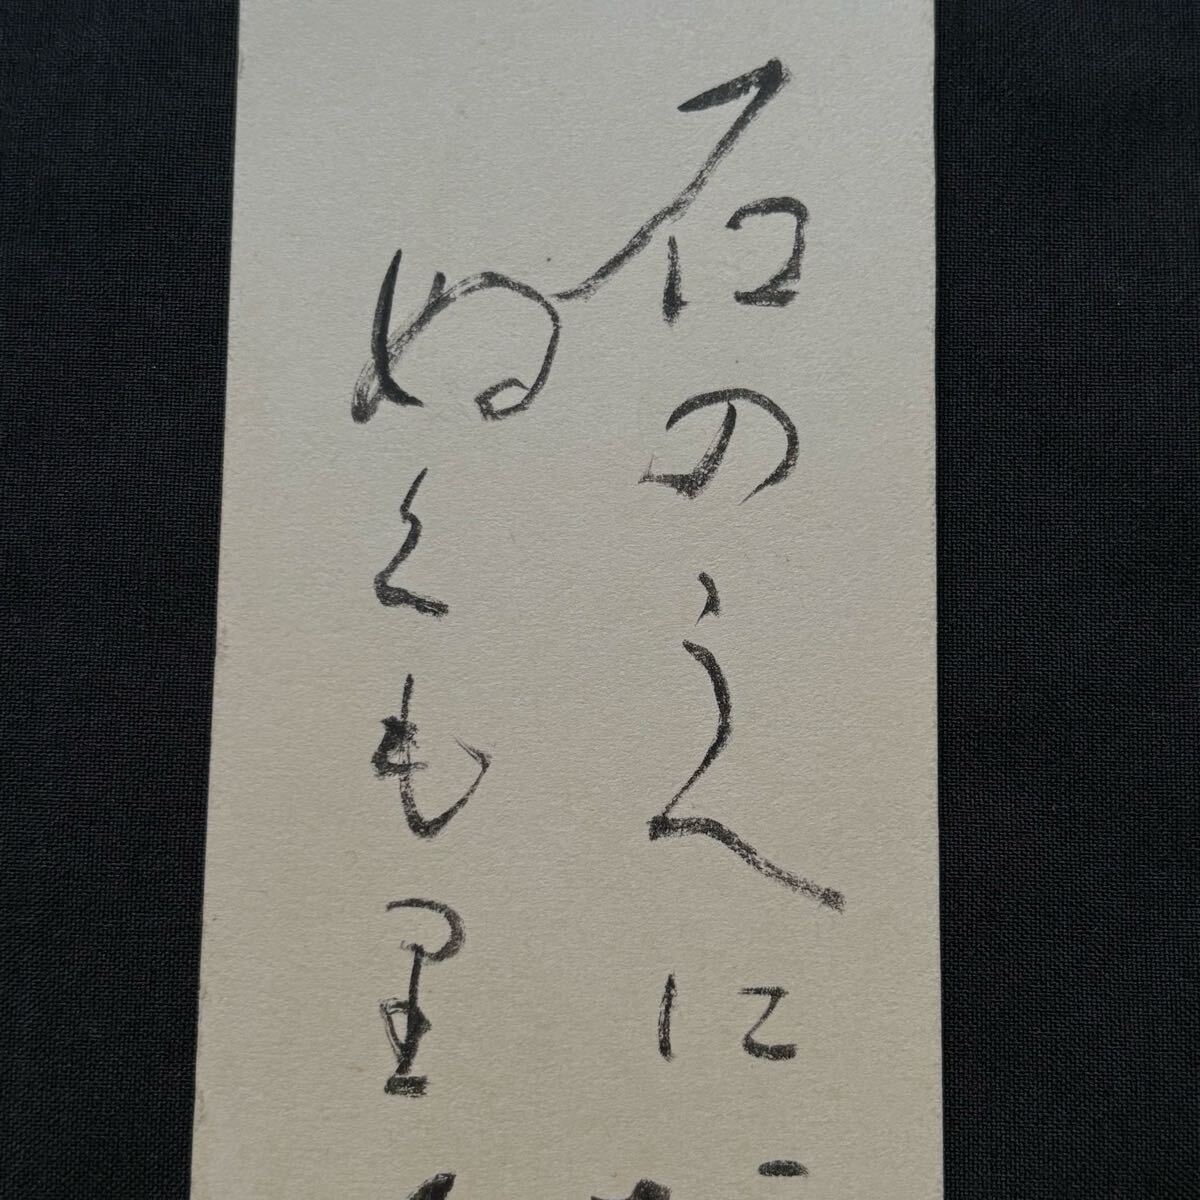 石のうへに
ぬくも里